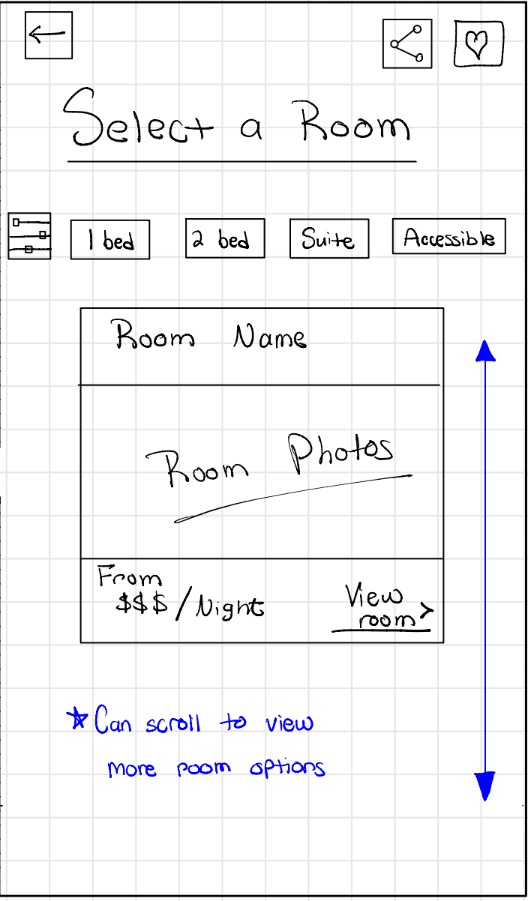 Select a Room
1 bed
2 bed
Suite
Accessible
Room Name
Room Photos
From
$$$/Night
View
room>
*Can scroll to view
more room options